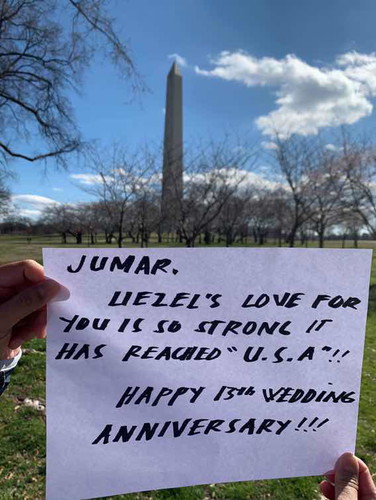 JUMAR.
LIEZEL'S LOVE FOR
YOU IS SO STRONG IT
HAS REACHED "U.S.A"!!
HAPPY 13th WEDDING
ANNIVERSARY!!!